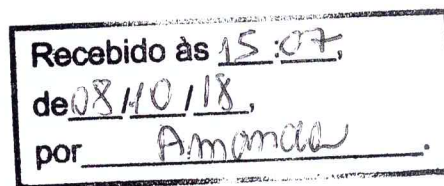 Recebido às 15:07,
de 08/10/18,
por Amanda.